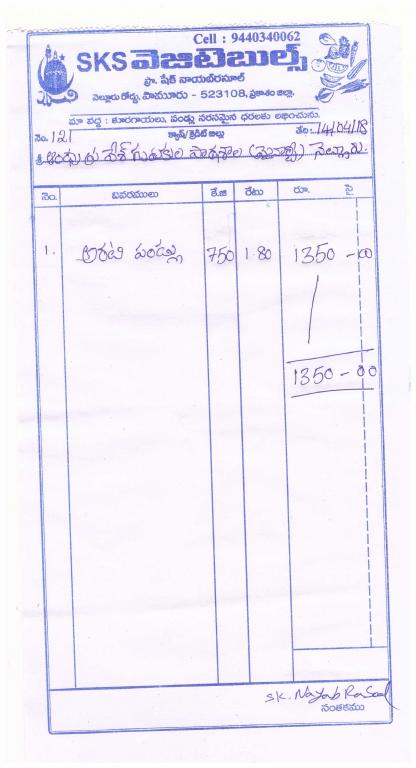 Cell : 9440340062
SKS వెజిటెబుల్స్
ప్రొ. షేక్ నాయబ్‌రసూల్
నెల్లూరు రోడ్డు, పామూరు - 523108, ప్రకాశం జిల్లా.
మా వద్ద : కూరగాయలు, పండ్లు సరసమైన ధరలకు లభించును.
నెం. 121 క్యాష్/క్రెడిట్ బిల్లు తేది: 14/04/18
శ్రీ ఆంధ్రప్రదేశ్ గురుకుల పాఠశాల (మైనార్టీ) నెల్లూరు.
నెం. వివరములు కే.జి రేటు రూ. పై
1. అరటి పండ్లు 750 1.80 1350 - 00
1350 - 00
SK. Nayab Rasool
సంతకము